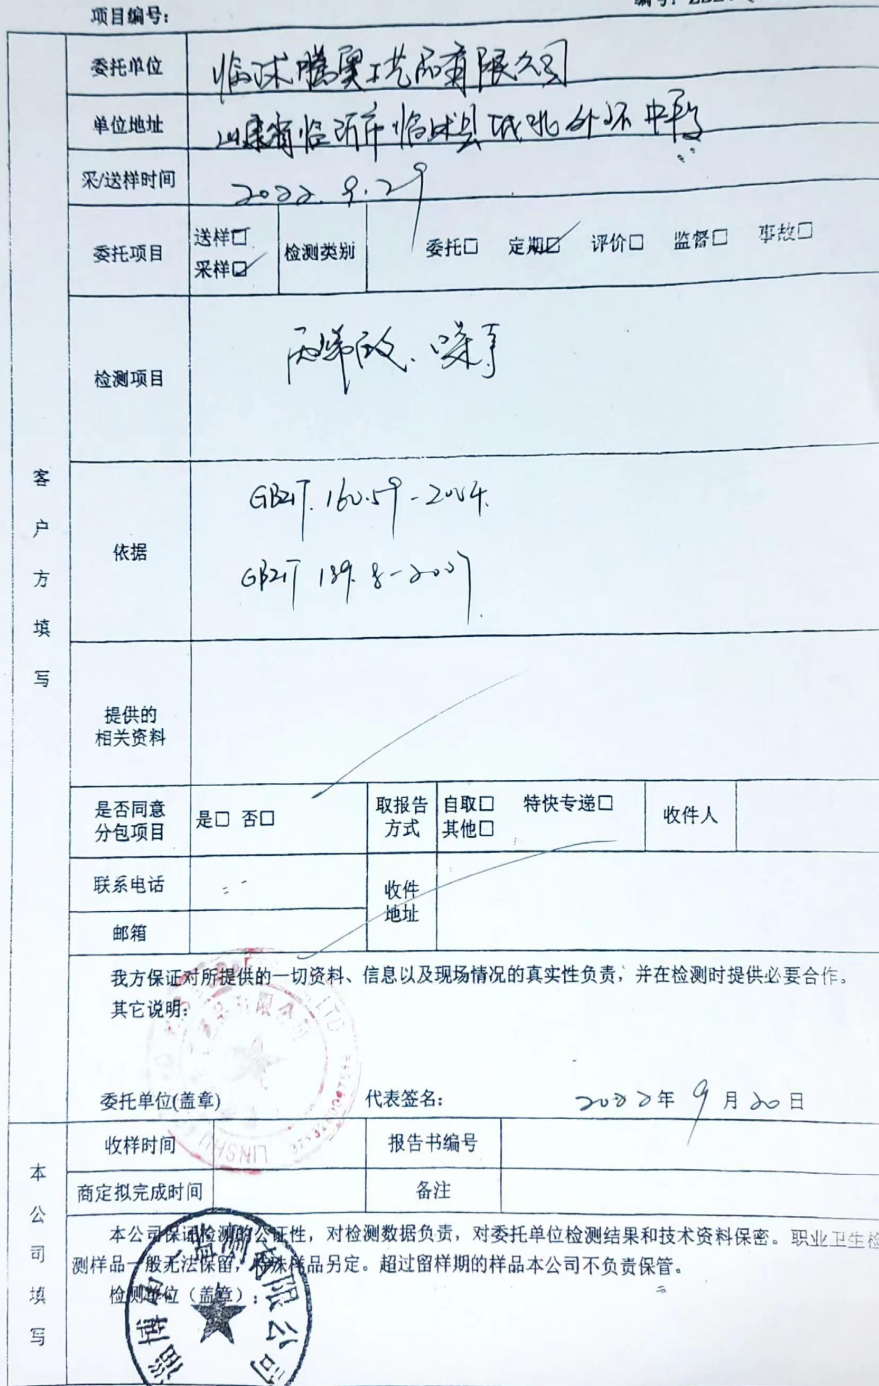 项目编号:
委托单位
工艺品有限公司
单位地址 山东省临沂市临沭县城北外环中段
采/送样时间 2022.9.29
委托项目 送样□ 采样☑ 检测类别 委托□ 定期☑ 评价□ 监督□ 事故□
检测项目 丙烯酸、噪声
客户方填写
依据
GBZ/T.160.59-2004.
GBZ/T 189.8-2007.
提供的
相关资料
是否同意
分包项目
是□ 否□
取报告
方式
自取□ 特快专递□
其他□
收件人
联系电话
收件
地址
邮箱
我方保证对所提供的一切资料、信息以及现场情况的真实性负责，并在检测时提供必要合作。
其它说明:
委托单位(盖章) 代表签名: 2022年9月20日
收样时间 报告书编号
商定拟完成时间 备注
本公司填写
本公司保证检测的公证性，对检测数据负责，对委托单位检测结果和技术资料保密。职业卫生检
测样品一般无法保留，特殊样品另定。超过留样期的样品本公司不负责保管。
检测单位（盖章）:
有限公司
LINSHU
淄博
监测有限公司